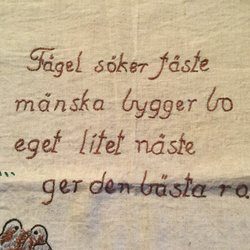 Fågel söker fäste
mänska bygger bo
eget litet näste
ger den bästa ro.